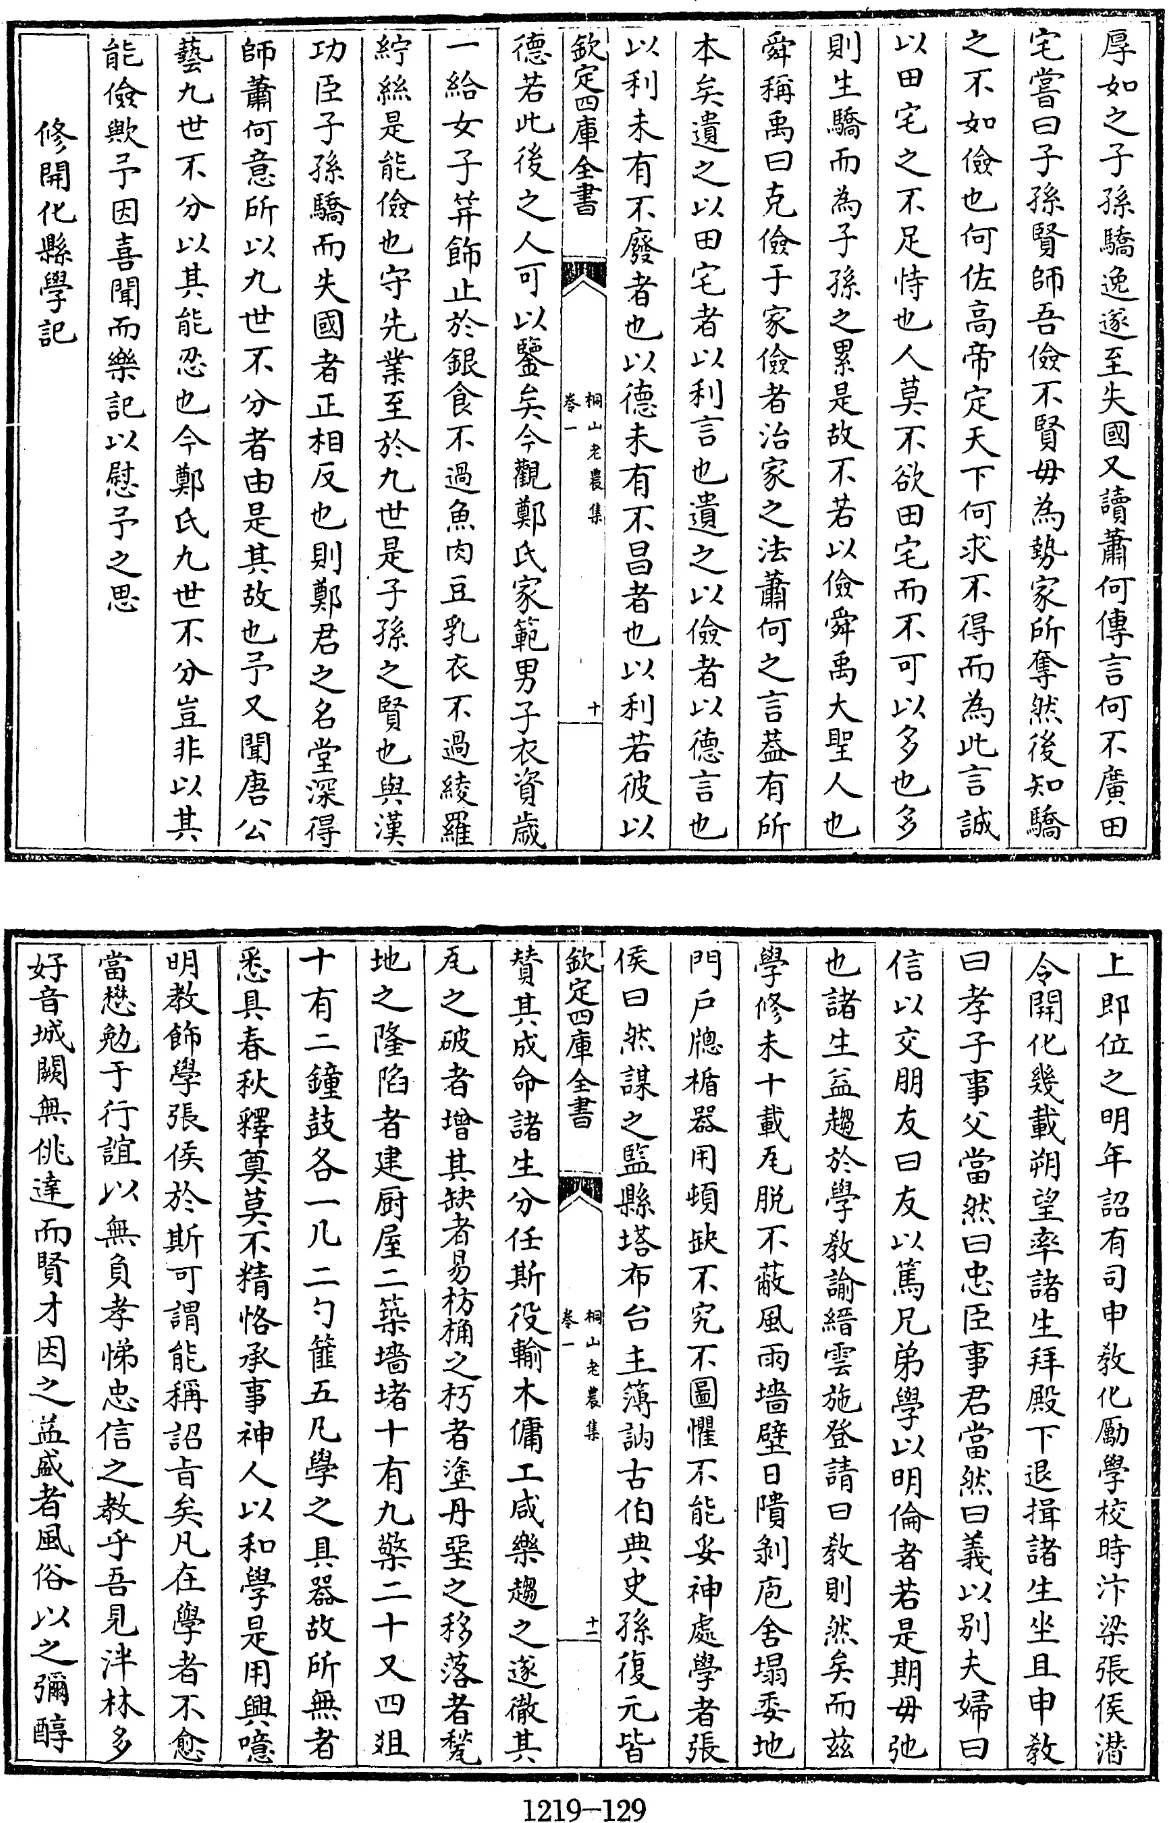 厚如之子孫驕逸遂至失國又讀蕭何傳言何不廣田
宅嘗曰子孫賢師吾儉不賢毋為勢家所奪然後知驕
之不如儉也何佐高帝定天下何求不得而為此言誠
以田宅之不足恃也人莫不欲田宅而不可以多也多
則生驕而為子孫之累是故不若以儉舜禹大聖人也
舜稱禹曰克儉于家儉者治家之法蕭何之言葢有所
本矣遺之以田宅者以利言也遺之以儉者以德言也
以利未有不廢者也以德未有不昌者也以利若彼以
欽定四庫全書
桐山老農集
卷一
十
德若此後之人可以鑒矣今觀鄭氏家範男子衣資歲
一給女子笄飾止於銀食不過魚肉豆乳衣不過綾羅
紵絲是能儉也守先業至於九世是子孫之賢也與漢
功臣子孫驕而失國者正相反也則鄭君之名堂深得
師蕭何意所以九世不分者由是其故也予又聞唐公
藝九世不分以其能忍也今鄭氏九世不分豈非以其
能儉歟予因喜聞而樂記以慰予之思
修開化縣學記
上即位之明年詔有司申教化勵學校時汴梁張侯潜
令開化幾載朔望率諸生拜殿下退揖諸生坐且申教
曰孝子事父當然曰忠臣事君當然曰義以别夫婦曰
信以交朋友曰友以篤兄弟學以明倫者若是期毋弛
也諸生益趨於學教諭縉雲施登請曰教則然矣而兹
學修未十載瓦脱不蔽風雨墻壁日隤剝庖舍塌委地
門戶牎楯器用頓缺不究不圖懼不能妥神處學者張
侯曰然謀之監縣塔布台主簿訥古伯典史孫復元皆
欽定四庫全書
桐山老農集
卷一
十一
賛其成命諸生分任斯役輸木傭工咸樂趨之遂徹其
瓦之破者增其缺者易枋桷之朽者塗丹堊之移落者甃
地之隆陷者建厨屋二築墻堵十有九檠二十又四俎
十有二鐘鼓各一几二勺篚五凡學之具器故所無者
悉具春秋釋奠莫不精恪承事神人以和學是用興噫
明教飾學張侯於斯可謂能稱詔旨矣凡在學者不愈
當懋勉于行誼以無負孝悌忠信之教乎吾見泮林多
好音城闕無佻達而賢才因之益盛者風俗以之彌醇
1219-129